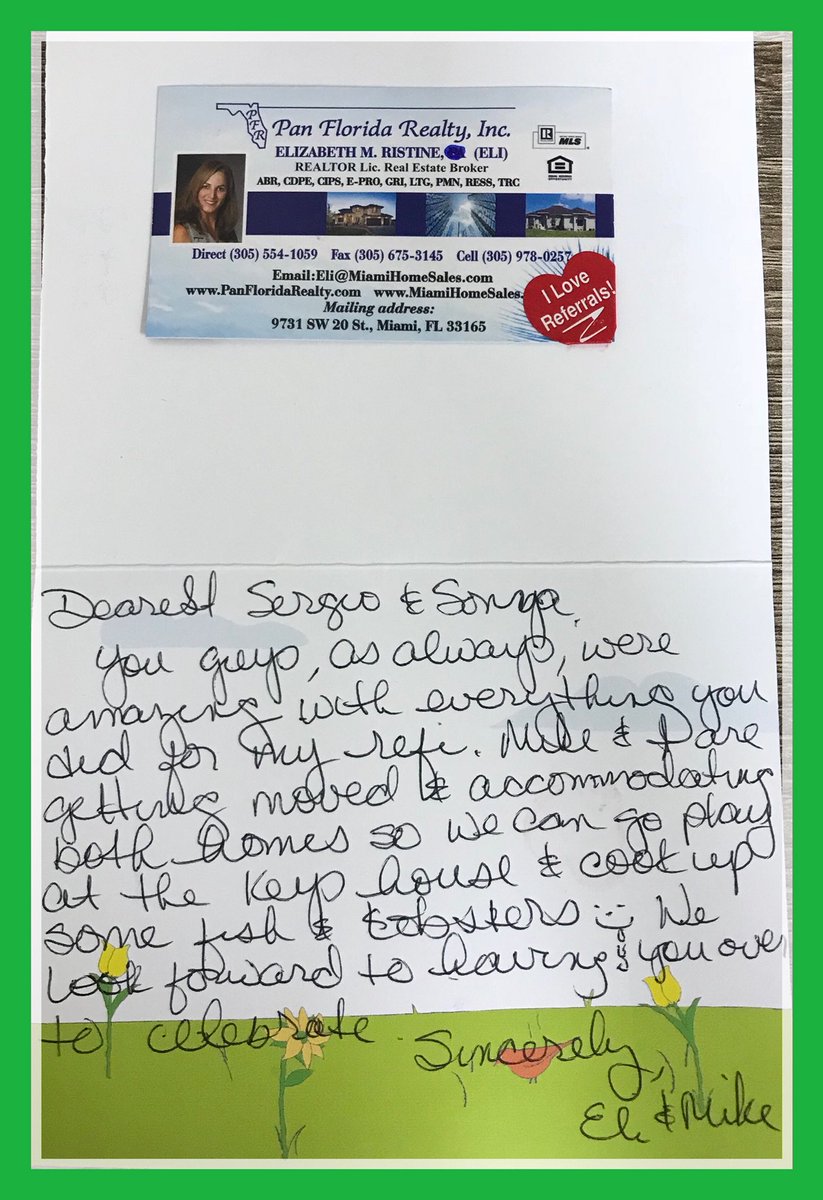 PFR
Pan Florida Realty, Inc.
ELIZABETH M. RISTINE, (ELI)
REALTOR Lic. Real Estate Broker
ABR, CDPE, CIPS, E-PRO, GRI, LTG, PMN, RESS, TRC
MLS
Direct (305) 554-1059 Fax (305) 675-3145 Cell (305) 978-0257
Email:Eli@MiamiHomeSales.com
www.PanFloridaRealty.com www.MiamiHomeSales.
Mailing address:
9731 SW 20 St., Miami, FL 33165
I Love
Referrals!
Dearest Sergio & Sonya,
You guys, as always, were
amazing with everything you
did for my refi. Mike & I are
getting moved & accommodating
both homes so we can go play
at the Keys house & cook up
some fish & lobsters :) We
look forward to having you over
to celebrate.
Sincerely,
Eli & Mike